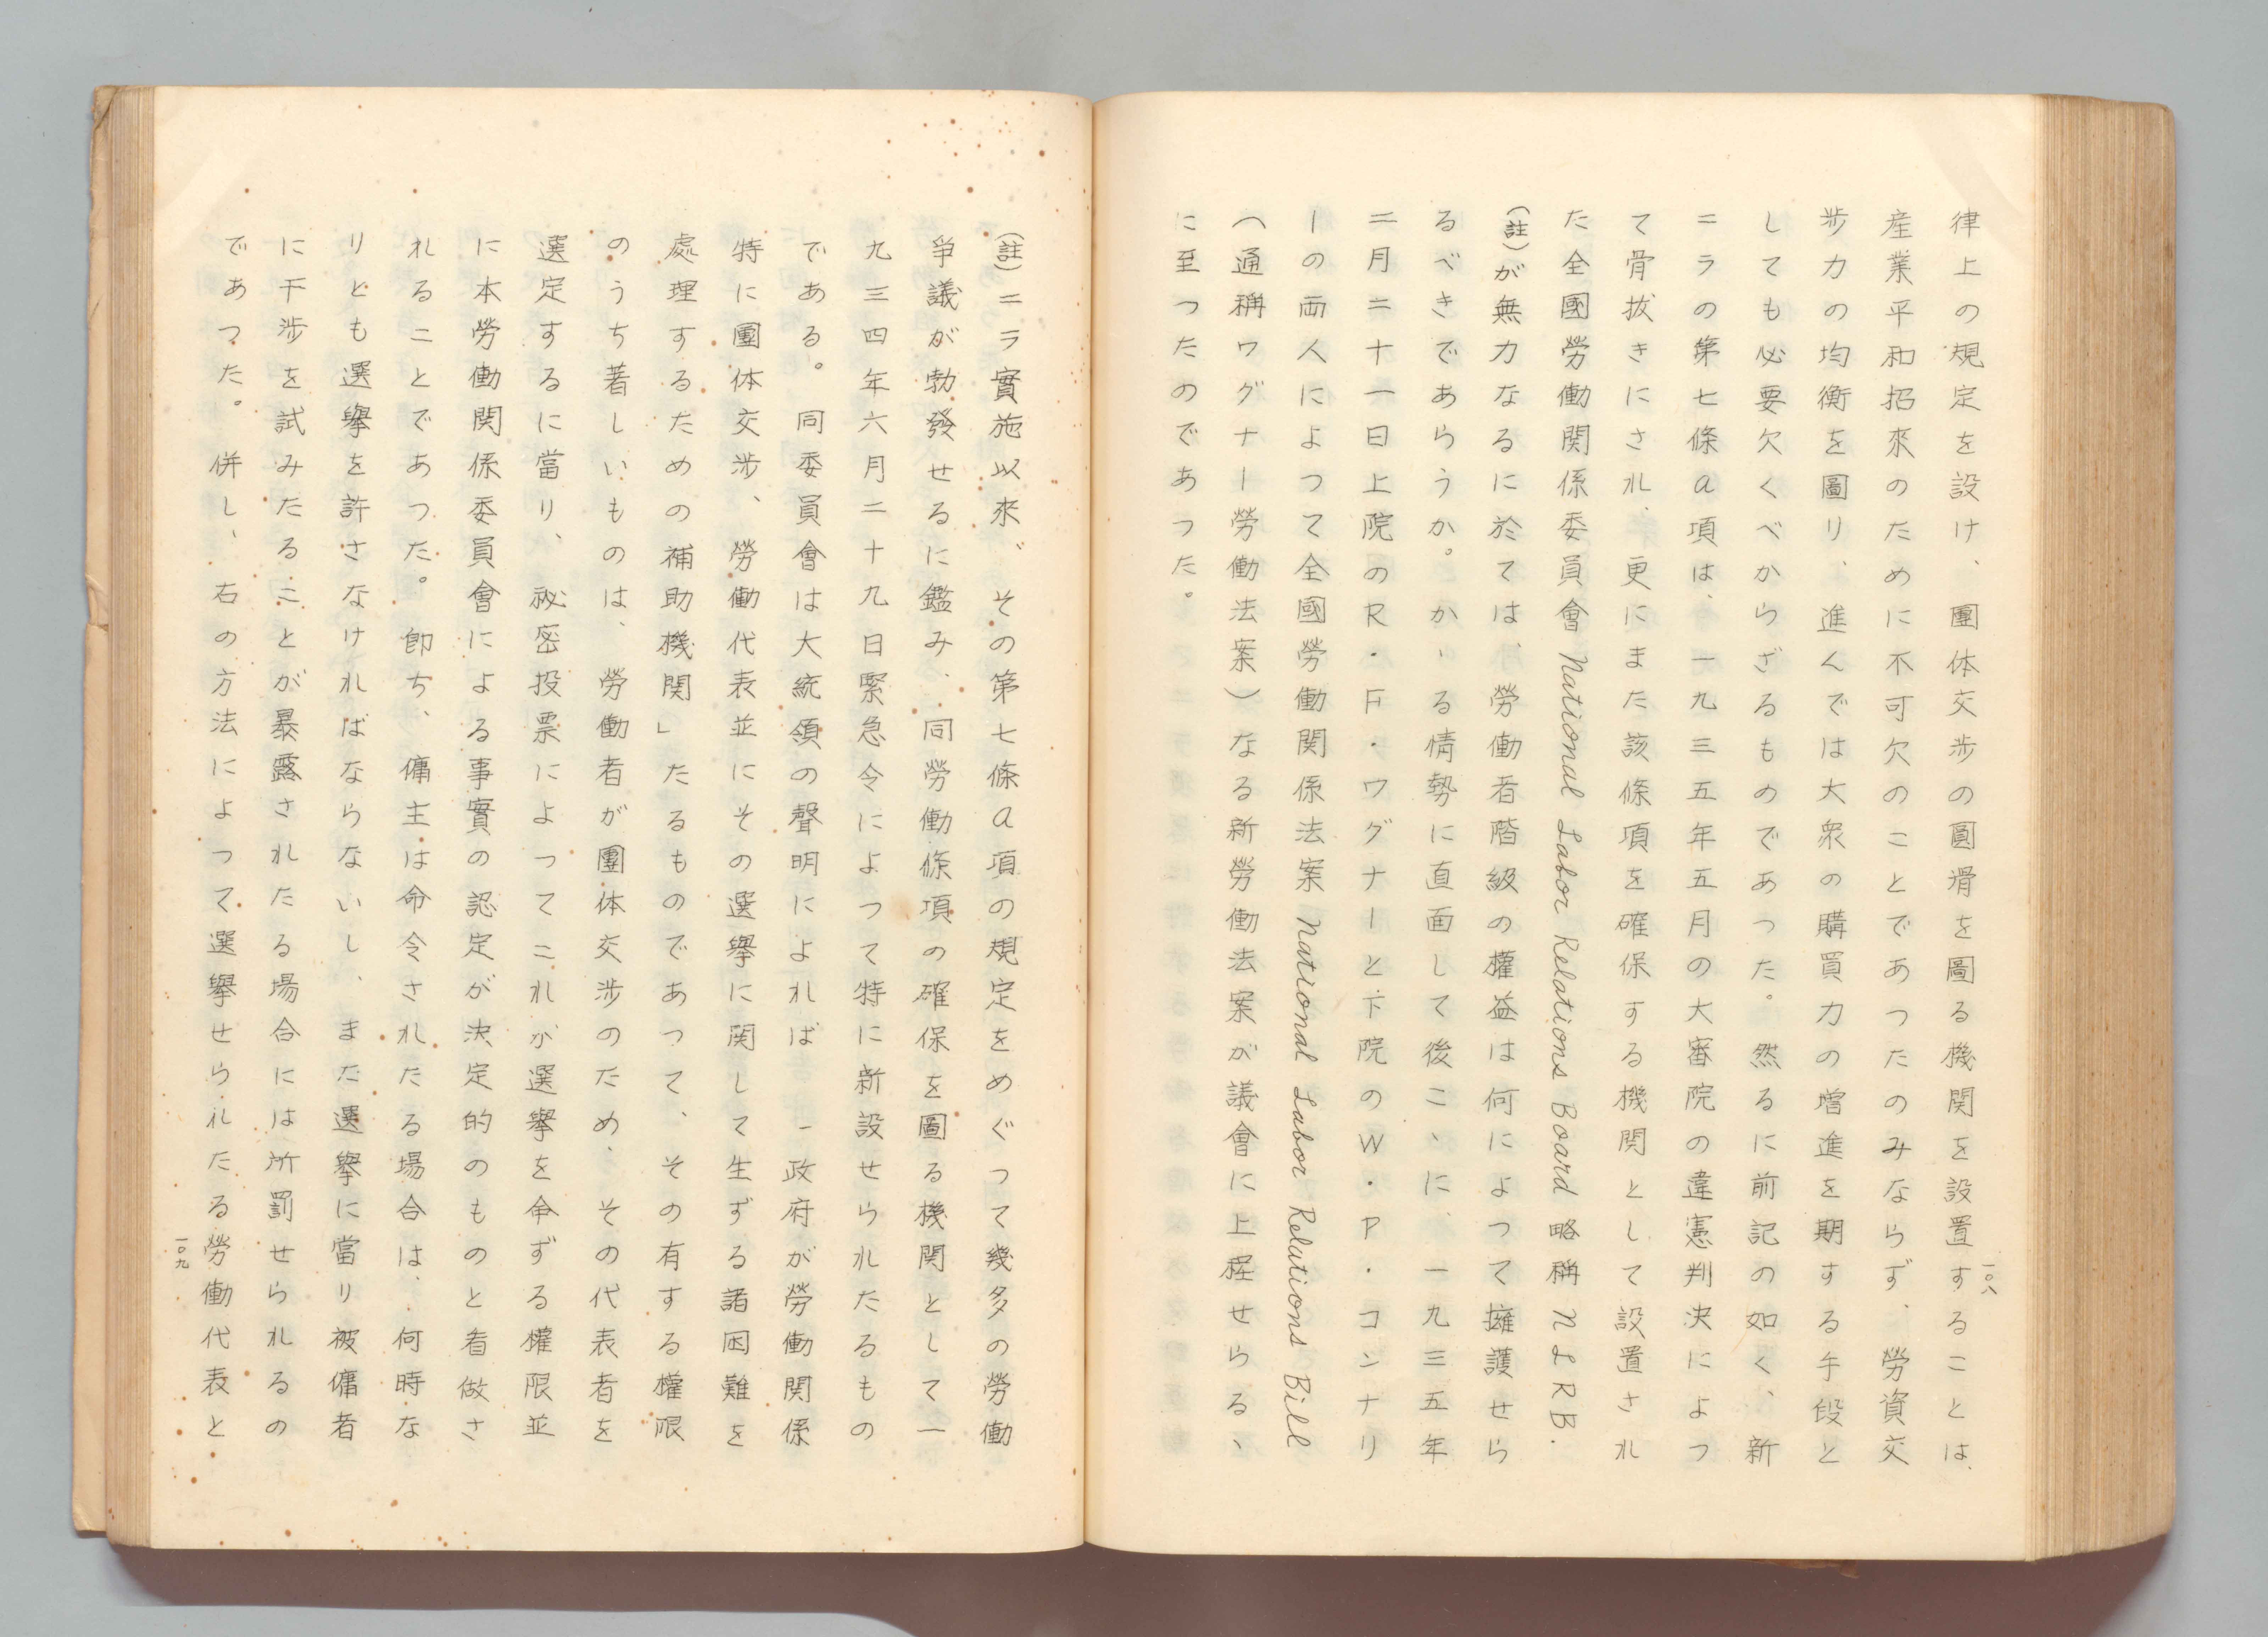 律上の規定を設け、團体交渉の圓滑を圖る機関を設置することは、
産業平和招來のために不可欠のことであつたのみならず、勞資交
渉力の均衡を圖り、進んでは大衆の購買力の増進を期する手段と
しても必要欠くべからざるものであつた。然るに前記の如く、新
ニラの第七條a項は、一九三五年五月の大審院の違憲判決によつ
て骨拔きにされ、更にまた該條項を確保する機関として設置され
た全國勞働関係委員會 National Labor Relations Board 略稱 NLRB.
(註)が無力なるに於ては、勞働者階級の權益は何によつて擁護せら
るべきであらうか。かゝる情勢に直面して後こゝに、一九三五年
二月二十一日上院のR・F・ワグナーと下院のW・P・コンナリ
ーの両人によつて全國勞働関係法案 National Labor Relations Bill
(通稱ワグナー勞働法案)なる新勞働法案が議會に上程せらるゝ
に至つたのであつた。
一〇八
(註)ニラ實施以來、その第七條a項の規定をめぐつて幾多の勞働
爭議が勃發せるに鑑み、同勞働條項の確保を圖る機関として一
九三四年六月二十九日緊急令によつて特に新設せられたるもの
である。同委員會は大統領の聲明によれば「政府が勞働関係
特に團体交渉、勞働代表並にその選擧に関して生ずる諸困難を
處理するための補助機関」たるものであつて、その有する權限
のうち著しいものは、勞働者が團体交渉のため、その代表者を
選定するに當り、祕密投票によつてこれが選擧を命ずる權限並
に本勞働関係委員會による事實の認定が決定的のものと看做さ
れることであつた。卽ち、傭主は命令されたる場合は、何時な
りとも選擧を許さなければならないし、また選擧に當り被傭者
に干渉を試みたることが暴露されたる場合には所罰せられるの
であつた。併し、右の方法によつて選擧せられたる勞働代表と
一〇九